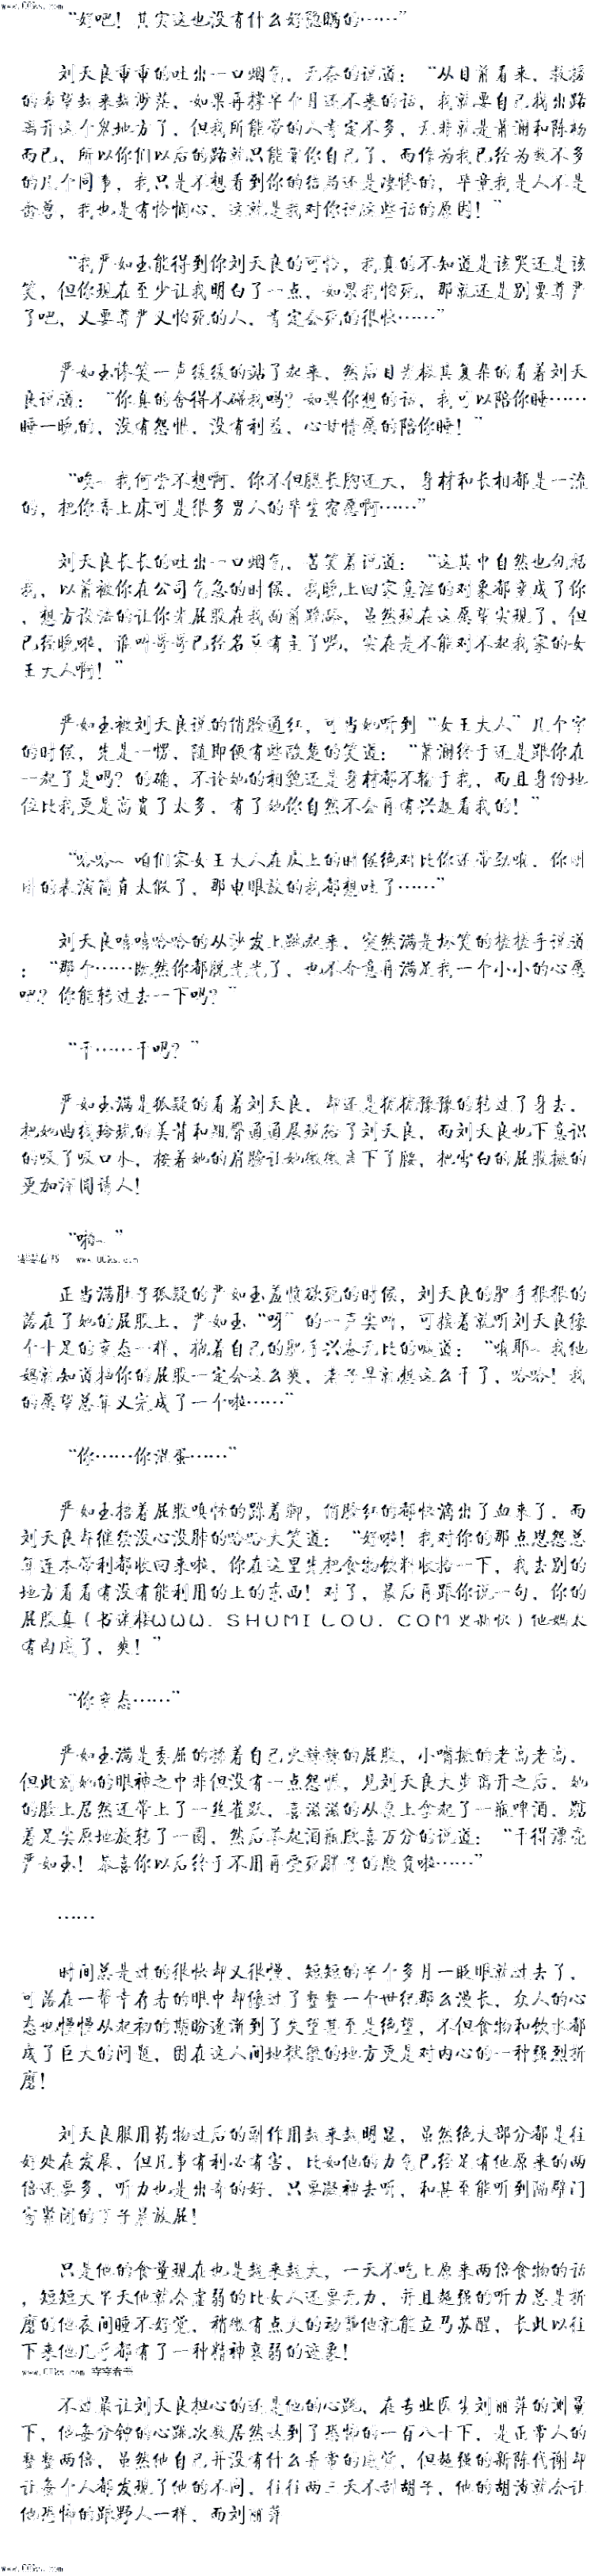 www.00ks.com
“好吧！其实这也没有什么好隐瞒的……”
刘天良重重的吐出一口烟气，无奈的说道：“从目前看来，救援
的希望越来越渺茫，如果再撑半个月还不来的话，我就要自己找出路
离开这个鬼地方了，但我所能带的人肯定不多，无非就是萧澜和陈杨
而已，所以你们以后的路就只能靠你自己了，而作为我已经为数不多
的几个同事，我只是不想看到你的结局还是凄惨的，毕竟我是人不是
畜兽，我也是有怜悯心，这就是我对你说这些话的原因！”
“我严如玉能得到你刘天良的可怜，我真的不知道是该哭还是该
笑，但你现在至少让我明白了一点，如果我怕死，那就还是别要尊严
了吧，又要尊严又怕死的人，肯定会死的很快……”
严如玉惨笑一声缓缓的站了起来，然后目光极其复杂的看着刘天
良说道：“你真的舍得不碰我吗？如果你想的话，我可以陪你睡……
睡一晚的，没有怨恨，没有利益，心甘情愿的陪你睡！”
“唉~我何尝不想啊，你不但腿长胸还大，身材和长相都是一流
的，把你弄上床可是很多男人的毕生宿愿啊……”
刘天良长长的吐出一口烟气，苦笑着说道：“这其中自然也包括
我，以前被你在公司气急的时候，我晚上回家意淫的对象都变成了你
，想方设法的让你光屁股在我面前跪舔，虽然现在这愿望实现了，但
已经晚啦，谁叫哥哥已经名草有主了呢，实在是不能对不起我家的女
王大人啊！”
严如玉被刘天良说的俏脸通红，可当她听到“女王大人”几个字
的时候，先是一愣，随即便有些酸楚的笑道：“萧澜终于还是跟你在
一起了是吗？的确，不论她的相貌还是身材都不输于我，而且身份地
位比我更是高贵了太多，有了她你自然不会再有兴趣看我的！”
“哈哈~咱们家女王大人在床上的时候绝对比你还带劲哦，你刚
刚的表演简直太假了，那电眼放的我都想吐了……”
刘天良嘻嘻哈哈的从沙发上跳起来，突然满是坏笑的搓搓手说道
：“那个……既然你都脱光光了，也不介意再满足我一个小小的心愿
吧？你能转过去一下吗？”
“干……干吗？”
严如玉满是狐疑的看着刘天良，却还是犹犹豫豫的转过了身去，
把她曲线玲珑的美背和翘臀通通展现给了刘天良，而刘天良也下意识
的吸了吸口水，按着她的肩膀让她微微弯下了腰，把雪白的屁股撅的
更加浑圆诱人！
“啪~”
www.00ks.com
正当满肚子狐疑的严如玉羞愤欲死的时候，刘天良的肥手狠狠的
落在了她的屁股上，严如玉“呀”的一声尖叫，可接着就听刘天良像
个十足的变态一样，拍着自己的肥手兴奋无比的喊道：“哦耶~我他
妈就知道拍你的屁股一定会这么爽，老子早就想这么干了，哈哈！我
的愿望总算又完成了一个啦……”
“你……你混蛋……”
严如玉捂着屁股嗔怪的跺着脚，俏脸红的都快滴出了血来了，而
刘天良却继续没心没肺的哈哈大笑道：“好啦！我对你的那点恩怨总
算连本带利都收回来啦，你在这里先把食物饮料收拾一下，我去别的
地方看看有没有能利用的上的东西！对了，最后再跟你说一句，你的
屁股真（书迷楼WWW.SHUMILOU.COM更新快）他妈太
有肉感了，爽！”
“你变态……”
严如玉满是委屈的揉着自己火辣辣的屁股，小嘴撅的老高老高，
但此刻她的眼神之中非但没有一点怨恨，见刘天良大步离开之后，她
的脸上居然还带上了一丝雀跃，喜滋滋的从桌上拿起了一瓶啤酒，踮
着足尖原地旋转了一圈，然后举起酒瓶欣喜万分的说道：“干得漂亮
严如玉！恭喜你以后终于不用再受死胖子的欺负啦……”
……
时间总是过的很快却又很慢，短短的半个多月一眨眼就过去了，
可落在一帮幸存者的眼中却像过了整整一个世纪那么漫长，众人的心
态也慢慢从起初的期盼逐渐到了失望甚至是绝望，不但食物和饮水都
成了巨大的问题，困在这人间地狱般的地方更是对内心的一种强烈折
磨！
刘天良服用药物过后的副作用越来越明显，虽然绝大部分都是往
好处在发展，但凡事有利必有害，比如他的力气已经足有他原来的两
倍还要多，听力也是出奇的好，只要凝神去听，和甚至能听到隔壁门
窗紧闭的丁子晨放屁！
只是他的食量现在也是越来越大，一天不吃上原来两倍食物的话
，短短大半天他就会虚弱的比女人还要无力，并且超强的听力总是折
磨的他夜间睡不好觉，稍微有点大的动静他就能立马苏醒，长此以往
下来他几乎都有了一种精神衰弱的迹象！
www.00ks.com
不过最让刘天良担心的还是他的心跳，在专业医生刘丽萍的测量
下，他每分钟的心跳次数居然达到了恐怖的一百八十下，是正常人的
整整两倍，虽然他自己并没有什么异常的感觉，但超强的新陈代谢却
让每个人都发现了他的不同，往往两三天不刮胡子，他的胡渣就会让
他恐怖的跟野人一样，而刘丽萍
www.00ks.com